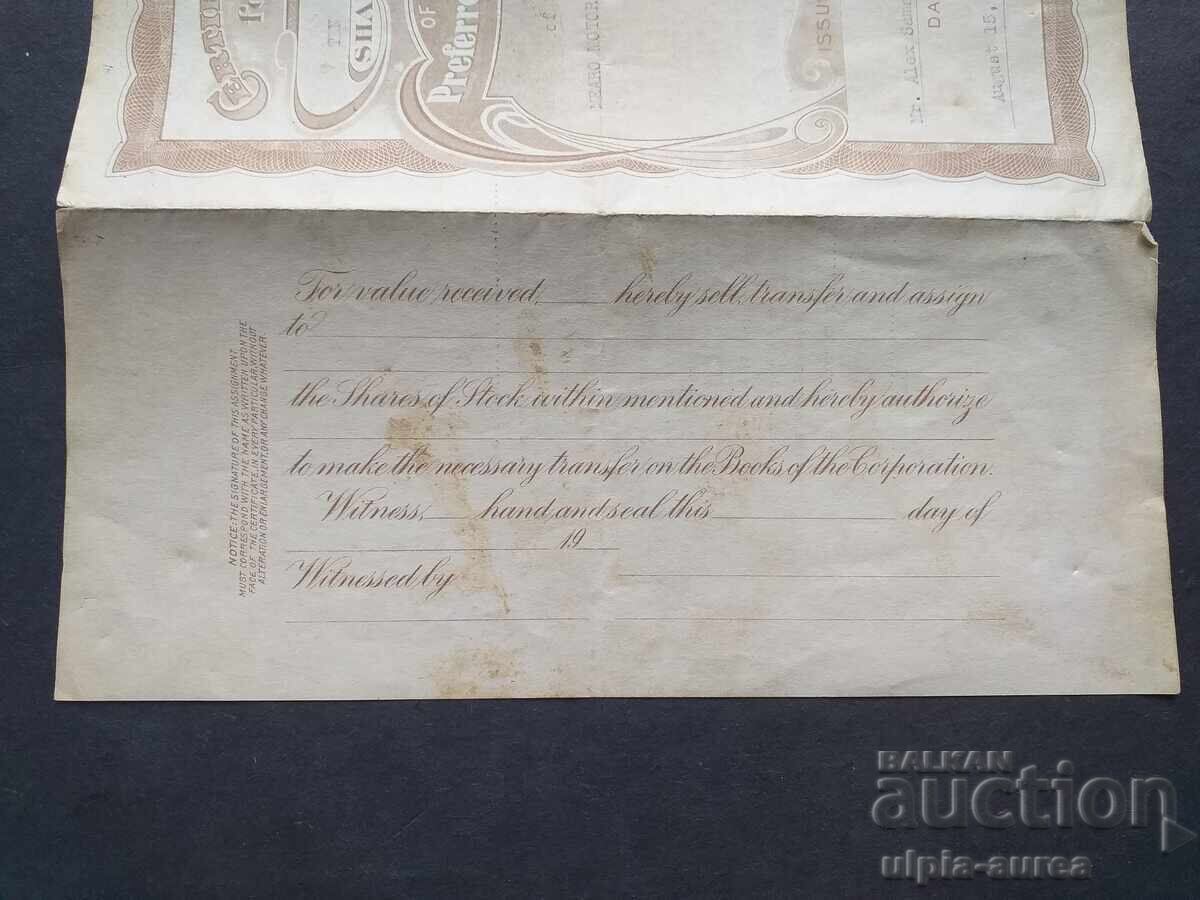 IN
SHA
OF
Preferre
of
MOTOR
ISSU
Mr. Alex
DA
August 15,
For value received, hereby sell, transfer and assign
to
the Shares of Stock within mentioned and hereby authorize
to make the necessary transfer on the Books of the Corporation.
Witness, hand and seal this day of
19
Witnessed by
NOTICE: THE SIGNATURE OF THIS ASSIGNMENT
MUST CORRESPOND WITH THE NAME AS WRITTEN UPON THE
FACE OF THE CERTIFICATE, IN EVERY PARTICULAR, WITHOUT
ALTERATION OR ENLARGEMENT, OR ANY CHANGE WHATEVER.
BALKAN
auction
ulpia-aurea